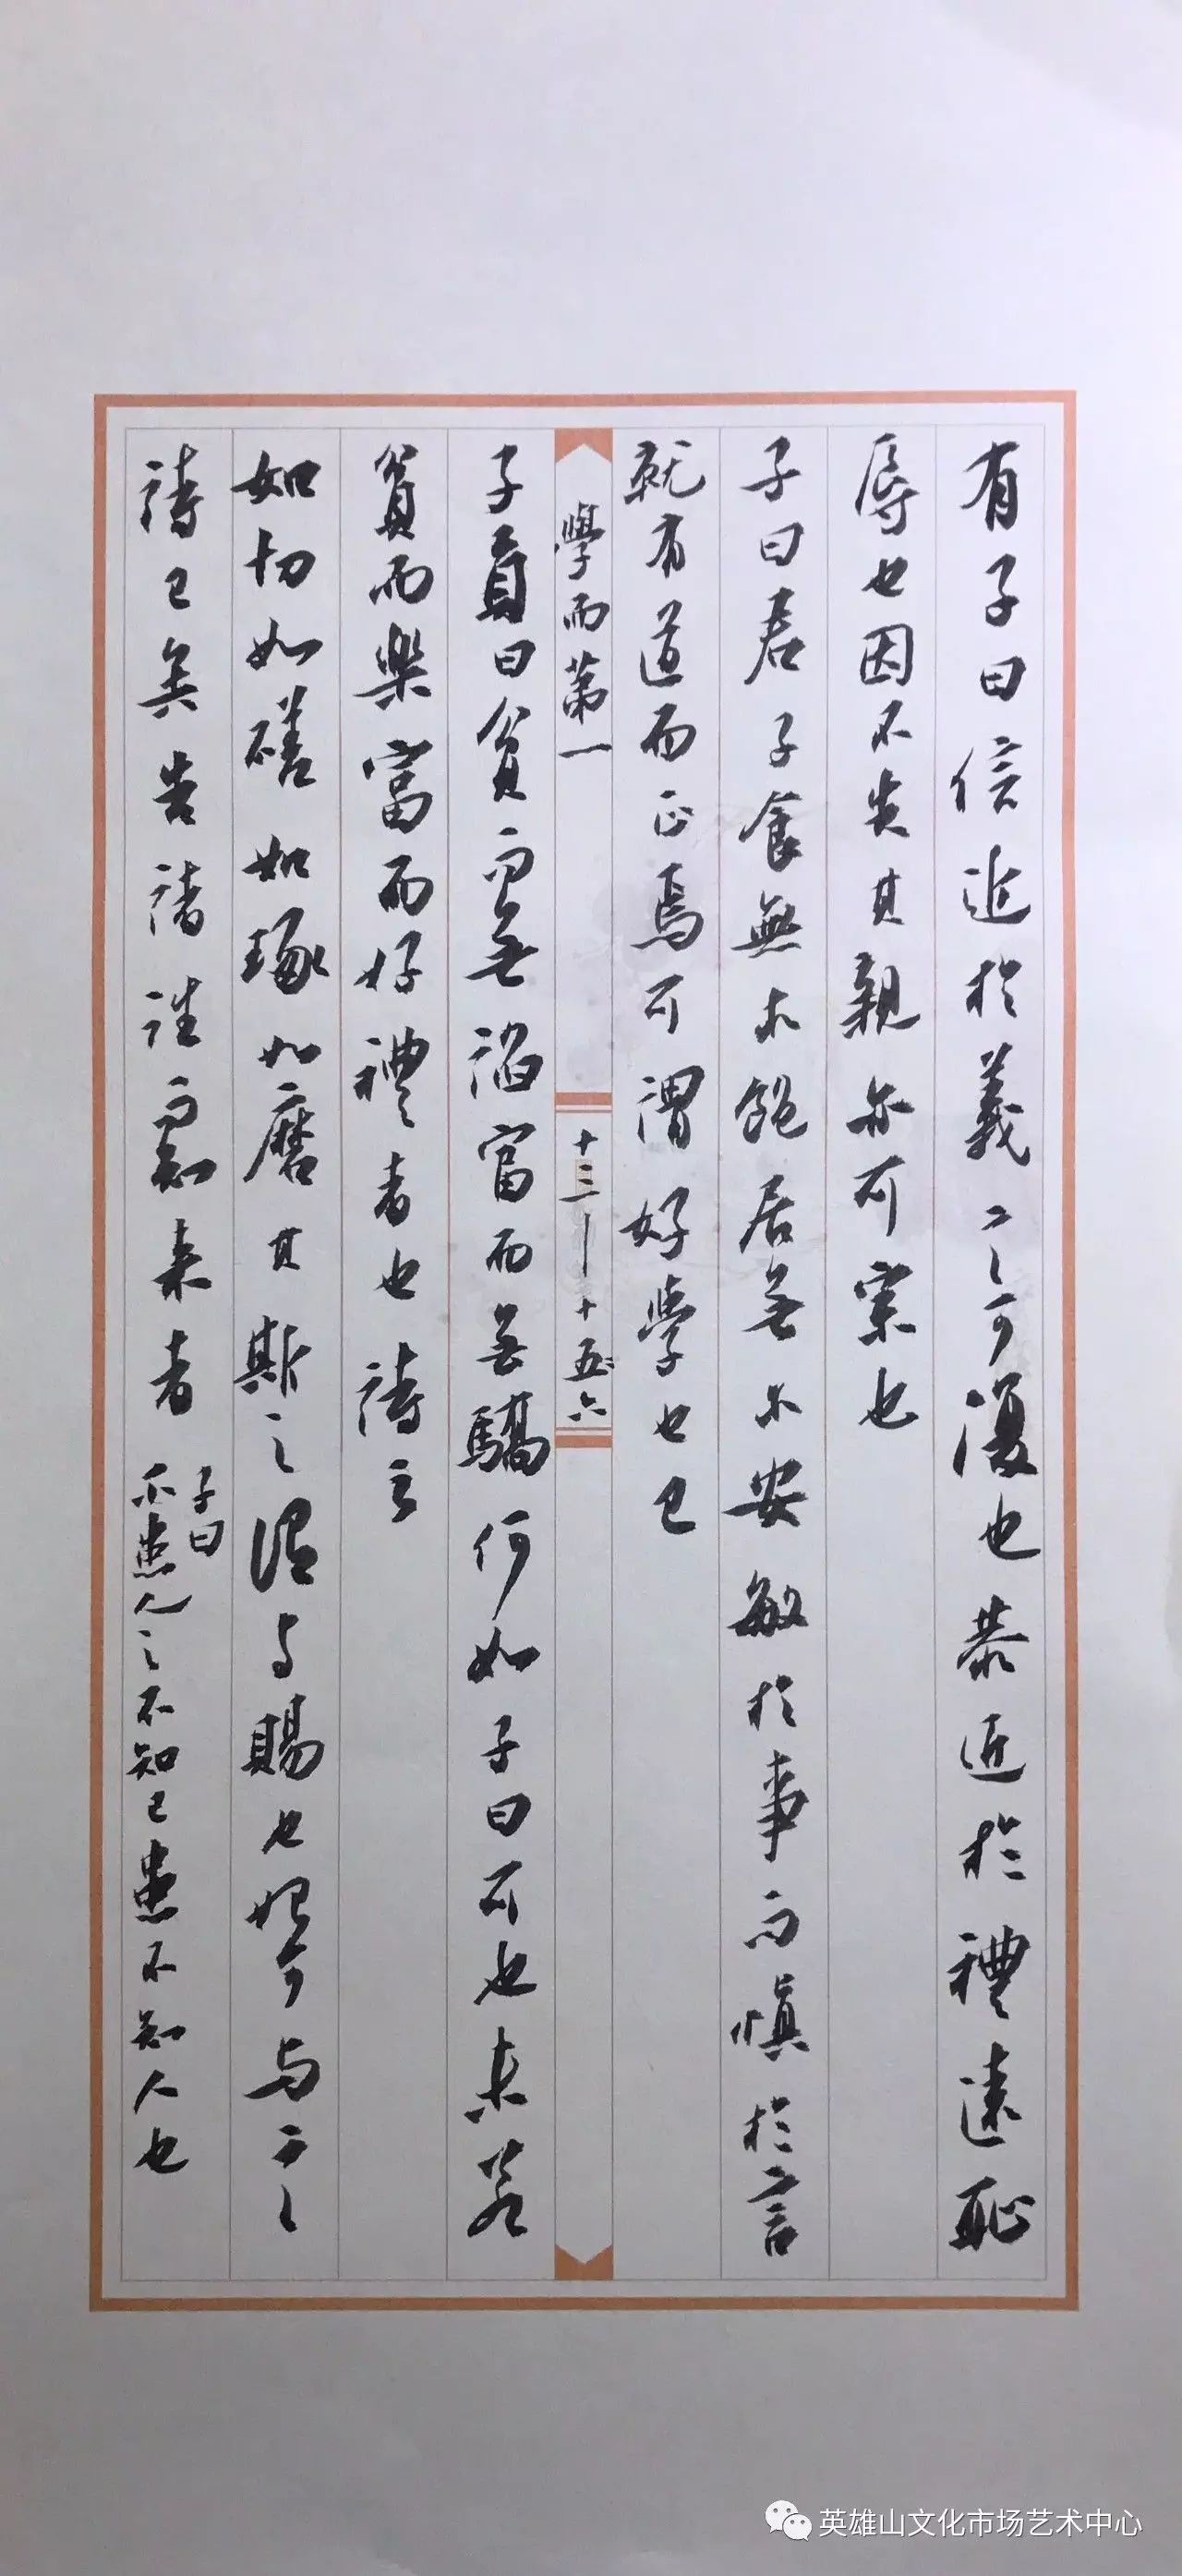 有子曰信近於義言可復也恭近於禮遠恥
辱也因不失其親亦可宗也
子曰君子食無求飽居無求安敏於事而慎於言
就有道而正焉可謂好學也已
學而第一
十三—十五六
子貢曰貧而無諂富而無驕何如子曰可也未若
貧而樂富而好禮者也詩云
如切如磋如琢如磨其斯之謂与賜也始可与言
詩已矣告諸往而知来者
子曰
不患人之不知己患不知人也
英雄山文化市场艺术中心